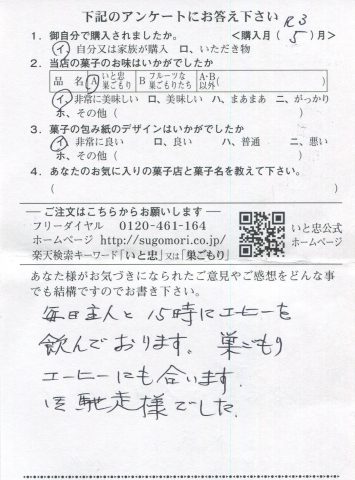 下記のアンケートにお答え下さい R3
1．御自分で購入されましたか。 ＜購入月（ 5 ）月＞
イ、自分又は家族が購入 ロ、いただき物
2．当店の菓子のお味はいかがでしたか
品 名 A いと忠巣ごもり B フルーツな巣ごもりたち A･B以外（ ）
イ、非常に美味しい ロ、美味しい ハ、まあまあ ニ、がっかり
ホ、その他（ ）
3．菓子の包み紙のデザインはいかがでしたか
イ、非常に良い ロ、良い ハ、普通 ニ、悪い
ホ、その他（ ）
4．あなたのお気に入りの菓子店と菓子名を教えて下さい。
（ ）
― ご注文はこちらからお願いします ―
フリーダイヤル 0120-461-164
ホームページ http://sugomori.co.jp/
楽天検索キーワード「いと忠」又は「巣ごもり」
いと忠公式
ホームページ
あなた様がお気づきになられたご意見やご感想をどんな事
でも結構ですのでお書き下さい。
毎日主人と 15時にコーヒーを
飲んでおります。 巣ごもり
コーヒーにも合います.
馳走様でした.